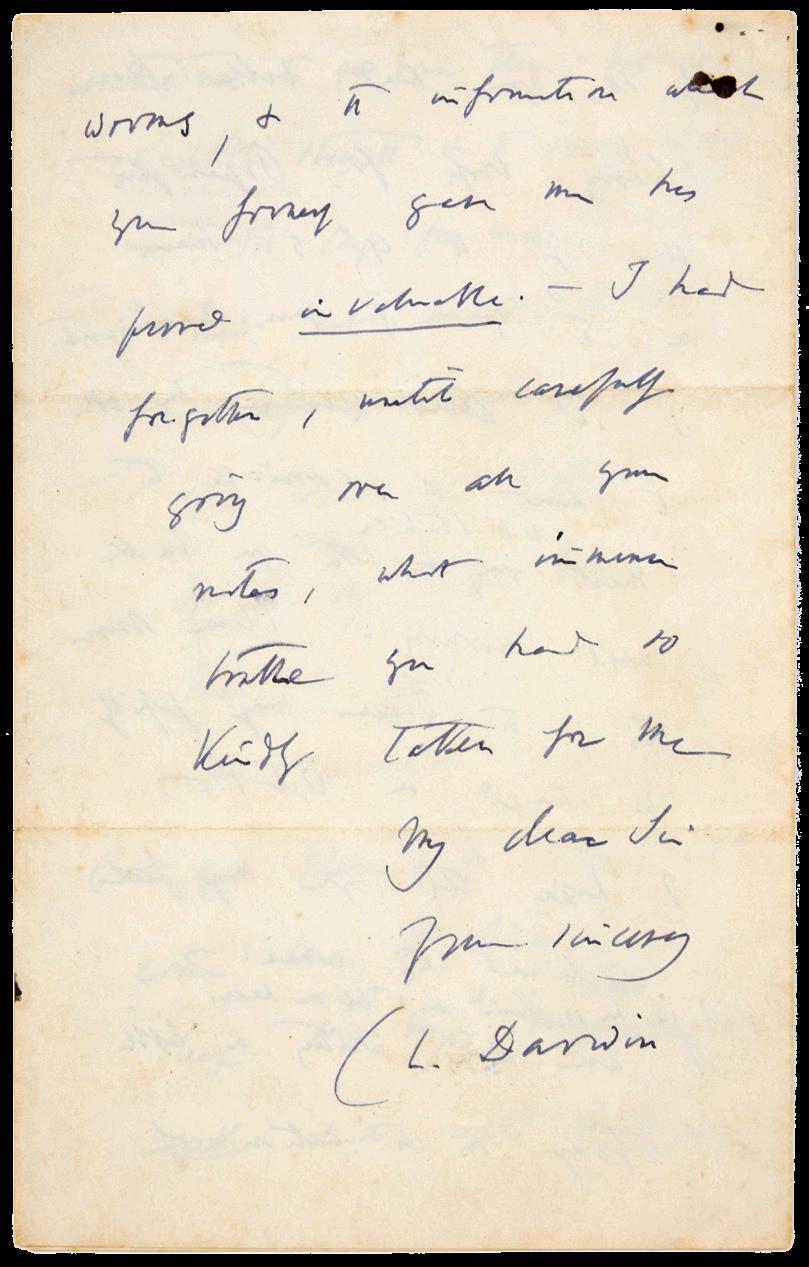 worms, & the information which
you formerly gave me has
proved invaluable. — I had
forgotten, until carefully
going over all your
notes, what immense
trouble you had so
kindly taken for me
My dear Sir
Yours sincerely
Ch. Darwin